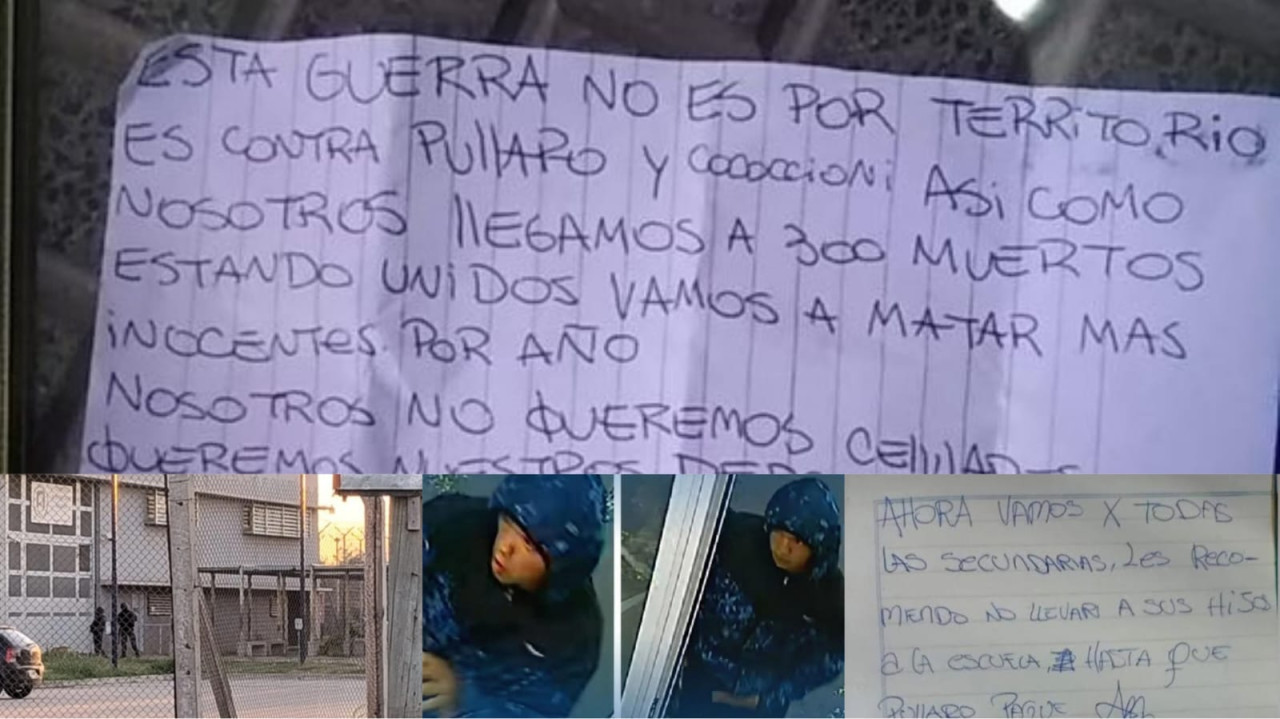 ESTA GUERRA NO ES POR TERRITORIO
ES CONTRA PUllARO Y COCOCCiONi ASi COMO
NOSOTROS llEGAMOS A 300 MUERTOS
ESTANDO UNiDOS VAMOS A MATAR MAS
iNOCENTES POR AÑO
NOSOTROS NO QUEREMOS CElUlARES
QUEREMOS NUESTROS
AHORA VAMOS X TODAS
LAS SECUNDARIAS, LES RECO-
MIENDO NO LLEVAR A SUS HiSOS
A LA ESCUELA, HASTA QUE
PULLARO PAGUE